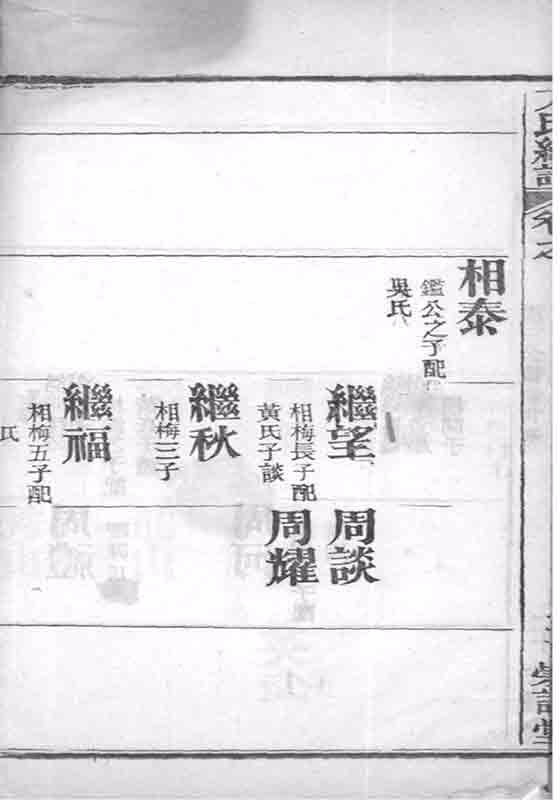 氏
相泰
鑑公之子配
吳氏
繼望
相梅長子配
黄氏子談
繼秋
相梅三子
繼福
相梅五子配
氏
周談
周耀